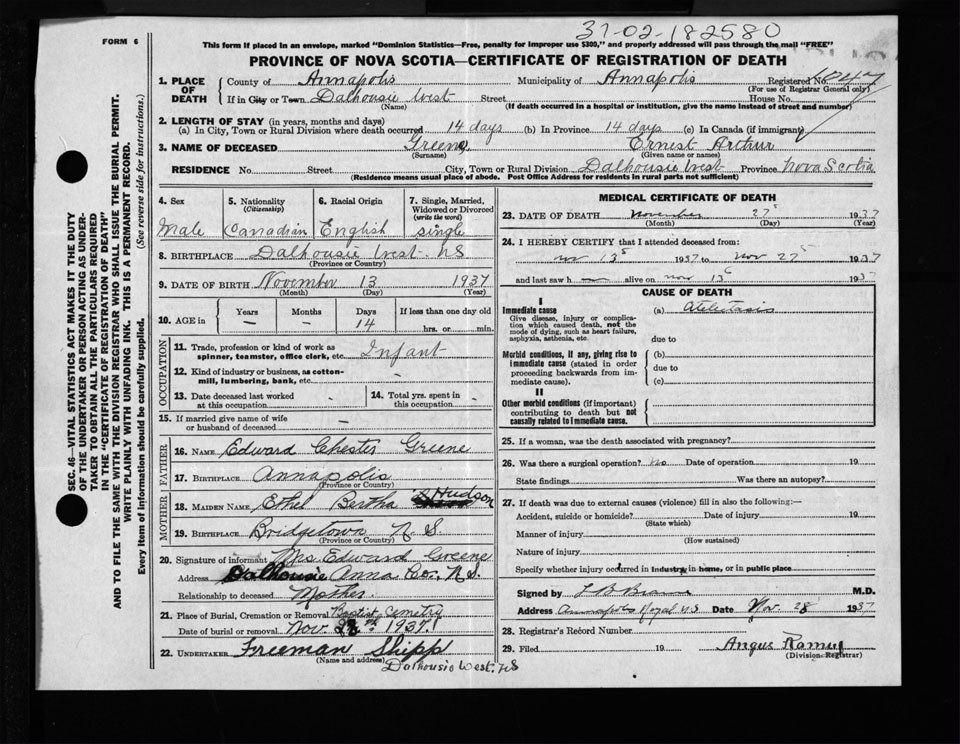 37-02-182580
FORM 6
This form if placed in an envelope, marked "Dominion Statistics—Free, penalty for improper use $300," and properly addressed will pass through the mail "FREE"
PROVINCE OF NOVA SCOTIA—CERTIFICATE OF REGISTRATION OF DEATH
1. PLACE OF DEATH County of Annapolis Municipality of Annapolis Registered No. 1047
(For use of Registrar General only)
If in City or Town Dalhousie West Street House No.
(Name) (If death occurred in a hospital or institution, give the name instead of street and number)
2. LENGTH OF STAY (in years, months and days)
(a) In City, Town or Rural Division where death occurred 14 days (b) In Province 14 days (c) In Canada (if immigrant)
3. NAME OF DECEASED Greene Ernest Arthur
(Surname) (Given name or names)
RESIDENCE No. Street City, Town or Rural Division Dalhousie West Province Nova Scotia
(Residence means usual place of abode. Post Office Address for residents in rural parts not sufficient)
4. Sex 5. Nationality (Citizenship) 6. Racial Origin 7. Single, Married, Widowed or Divorced (write the word)
Male Canadian English single
8. BIRTHPLACE Dalhousie West. NS
(Province or Country)
9. DATE OF BIRTH November 13 1937
(Month) (Day) (Year)
10. AGE in Years Months Days If less than one day old
— — 14 hrs. or min.
OCCUPATION
11. Trade, profession or kind of work as spinner, teamster, office clerk, etc. Infant
12. Kind of industry or business, as cotton-mill, lumbering, bank, etc. -
13. Date deceased last worked at this occupation - 14. Total yrs. spent in this occupation -
15. If married give name of wife or husband of deceased —
FATHER
16. NAME Edward Chester Greene
17. BIRTHPLACE Annapolis
(Province or Country)
MOTHER
18. MAIDEN NAME Ethel Bertha Hudson
19. BIRTHPLACE Bridgetown N S.
(Province or Country)
20. Signature of informant Mrs Edward Greene
Address Dalhousie Anna Co., N S.
Relationship to deceased Mother.
21. Place of Burial, Cremation or Removal Baptist Cemetry
Date of burial or removal Nov. 28th 1937.
22. UNDERTAKER Freeman Shipp
(Name and address) Dalhousie West. NS
MEDICAL CERTIFICATE OF DEATH
23. DATE OF DEATH November 27 1937
(Month) (Day) (Year)
24. I HEREBY CERTIFY that I attended deceased from:
Nov 13 1937 to Nov 27 1937
and last saw h alive on Nov 13 1937
CAUSE OF DEATH
I
Immediate cause (a) Atelectasis
Give disease, injury or complication which caused death, not the mode of dying, such as heart failure, asphyxia, asthenia, etc. due to
Morbid conditions, if any, giving rise to immediate cause (stated in order proceeding backwards from immediate cause). (b) due to (c)
II
Other morbid conditions (if important) contributing to death but not causally related to immediate cause.
25. If a woman, was the death associated with pregnancy?
26. Was there a surgical operation? no Date of operation 19
State findings Was there an autopsy?
27. If death was due to external causes (violence) fill in also the following:—
Accident, suicide or homicide? Date of injury 19
(State which)
Manner of injury
(How sustained)
Nature of injury
Specify whether injury occurred in industry, in home, or in public place
Signed by M.D.
Address Annapolis Royal N.S Date Nov. 28 1937
28. Registrar's Record Number
29. Filed 19 Angus
(Division Registrar)
SEC. 46—VITAL STATISTICS ACT MAKES IT THE DUTY
OF THE UNDERTAKER OR PERSON ACTING AS UNDER-
TAKER TO OBTAIN ALL THE PARTICULARS REQUIRED
IN THE "CERTIFICATE OF REGISTRATION OF DEATH"
AND TO FILE THE SAME WITH THE DIVISION REGISTRAR WHO SHALL ISSUE THE BURIAL PERMIT.
WRITE PLAINLY WITH UNFADING INK. THIS IS A PERMANENT RECORD.
Every item of information should be carefully supplied. (See reverse side for instructions.)